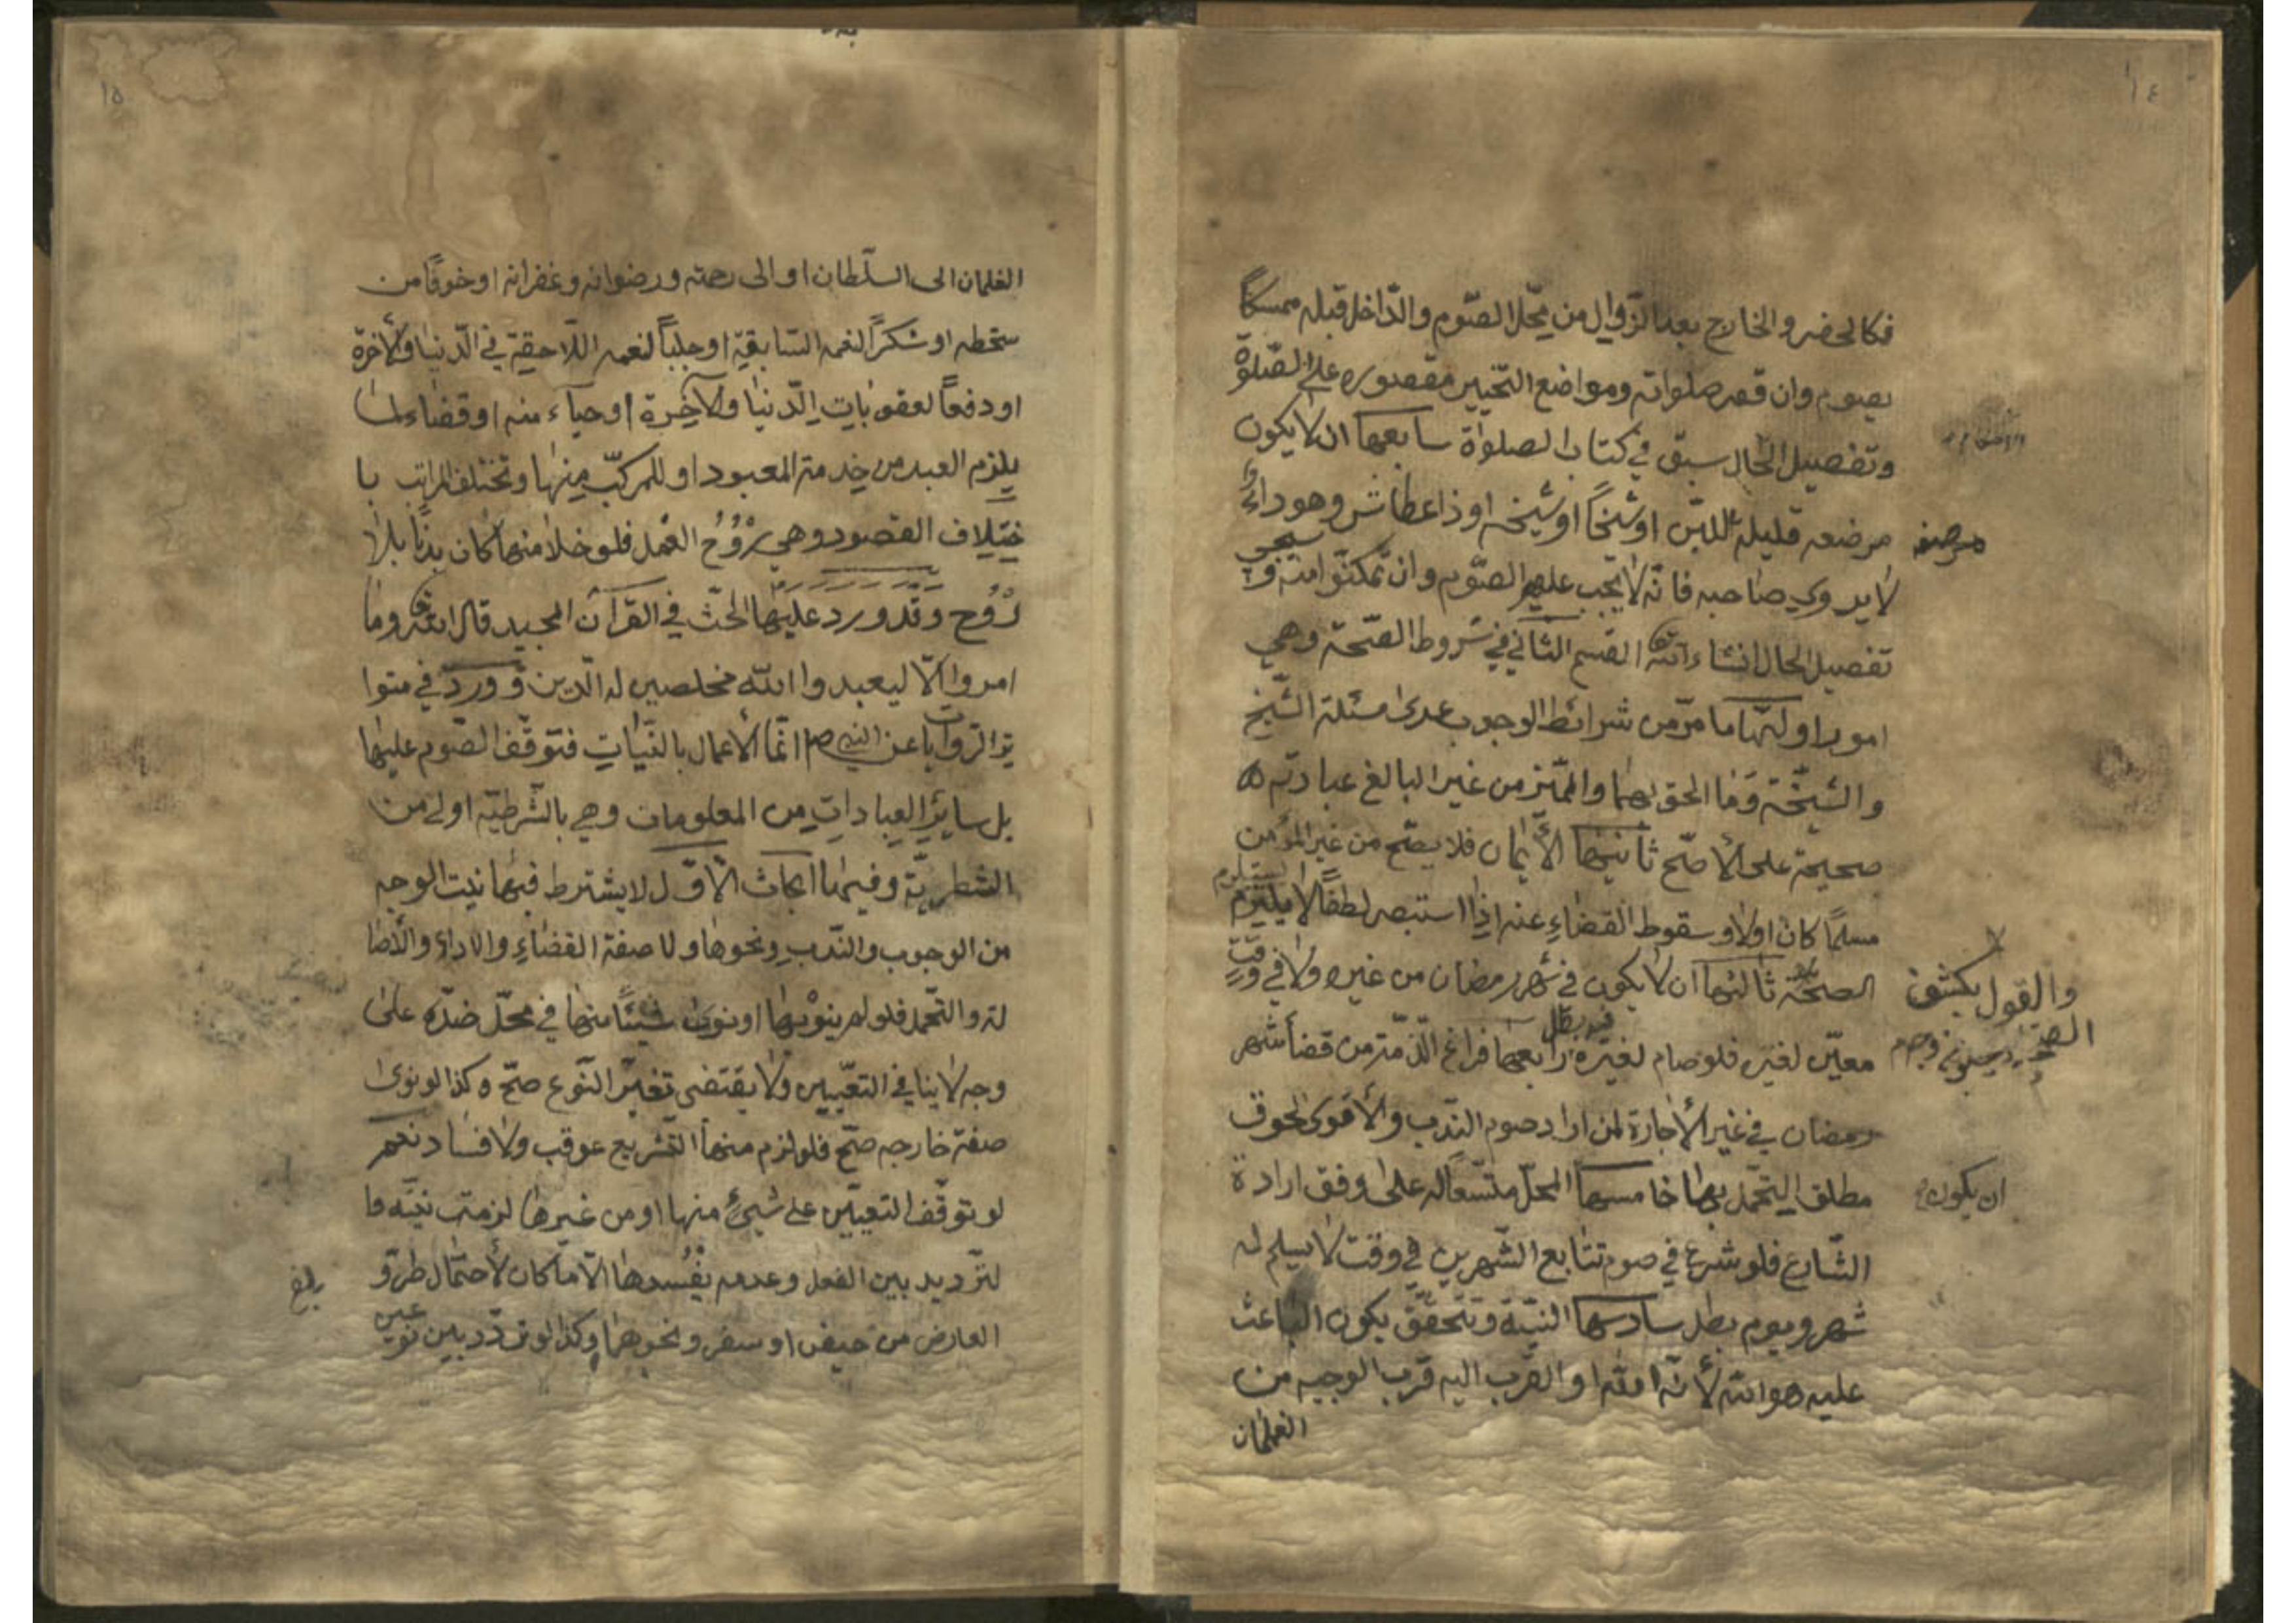 ١٤
فكالحضر والخارج بعد الزّوال من محّل الصّوم والدّاخل قبله ممسكاً
بصوم وان قصر صلواته ومواضع التخيير مقصوره على الصّلوٰة
وتفصيل الحال سبق في كتاب الصلوٰة سابعها ان لا يكون
مرضعه قليلة اللبن او شيخاً او شيخه او ذا عطاش وهو داءٌ
مرضعه
لا يروي صاحبه فانّه لا يجب عليهم الصّوم وان تمكنّوا منه و سيجي
تفصيل الحال انشاء الله تعٰ القسم الثاني في شروط الصّحة وهي
امور اولها ما مرّ من شرائط الوجوب عدى مسئلة الشّيخ
والشّيخة وما الحق بهما والممّيز من غير البالغ عبادته
صحيحة على الأصّح ثانيها الأيمان فلا يصّح من غير المؤمن
مسلمًا كان اولا وسقوط القضاءِ عنه اذا استبصر لطفًا لا يستلزم
الصحّة ثالثها ان لا يكون في شهر رمضان من غيره ولا في وقتٍ
والقول بكشف
الصحة
معيّن لغيره فلو صام لغيره فيه بطل رابعها فراغ الذّمّة من قضاء شهر
رمضان في غير الأجارة لمن اراد صوم النّدب والأقوى لحوق
مطلق التحّمل بها خامسها المحّل متّسعاً له على وفق ارادة
ان يكون
الشّارع فلو شرع في صوم تتابع الشّهرين في وقت لا يسلم له
شهر ويوم بطل سادسها النيّة وتتحقّق بكون الباعث
عليه هو الله لأنّه اهله او القرب اليه قرب الوجيه من
الغلمان
١٥
الغلمان الى السلّطان او الى رحمته ورضوانه وغفرانه او خوفًا من
سخطه او شكرًا لنعمه السّابقية او جلبًا لنعمه اللّاحقية في الدّنيا والأخرة
او دفعًا لعقوبات الدّنيا والآخرة او حياء منه او قضاء لما
يلزم العبد من خدمة المعبود او للمركبّ منها وتختلف المراتب با
ختلاف القصود وهي رُوُحُ العمل فلو خلا منها كان بدنًا بلا
رُوُح وقد ورد عليها الحثّ في القرآن المجيد قال الله تعٰ وما
امروا الّا ليعبدوا الله مخلصين له الدّين وورد في متوا
تر الرّوايات عن النبي ص انّما الأعمال بالنّيات فتوقّف الصّوم عليها
بل ساير العبادات من المعلومات وهي بالشّرطيّة اولى من
الشطريّة وفيها ابحاث الأوّل لا يشترط فيها نيت الوجه
من الوجوب والنّدب ونحوها ولا صفة القضاءِ والاداء والأصا
لة والتحّمل فلو لم ينوْها او نوى شيئًا منها في محّل ضدّه على
وجه لا ينافي التعيّين ولا يقتضى تغيّر النّوع صحّ وكذا لو نوى
صفة خارجه صحّ فلو لزم منها التّشريع عوقب ولا فساد نعم
لو توقّف التعيّين على شيءٍ منها او من غيرها لزمت نيّته وا
لتّرديد بين الفعل وعدمه يفسدها الّا ما كان لأحتمال طرّو
العارض من حيض او سفر ونحوهما وكذا لو تردّد بين نوعين